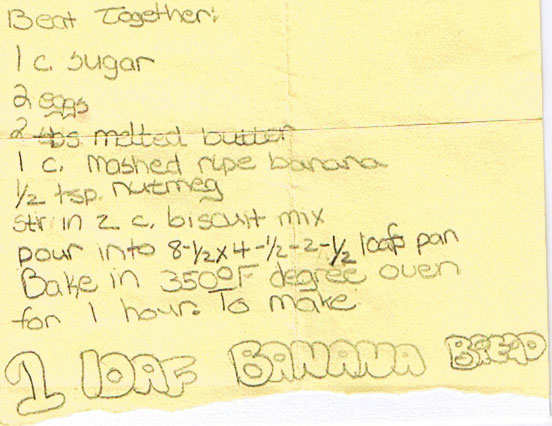 Beat Together:
1 c. sugar
2 eggs
2 tbs melted butter
1 c. mashed ripe banana
1/2 tsp. nutmeg
stir in 2 c. biscuit mix
pour into 8-1/2x4-1/2-2-1/2 loafs pan
Bake in 350°F degree oven
for 1 hour. To make
1 lOAF BANANA BREAD